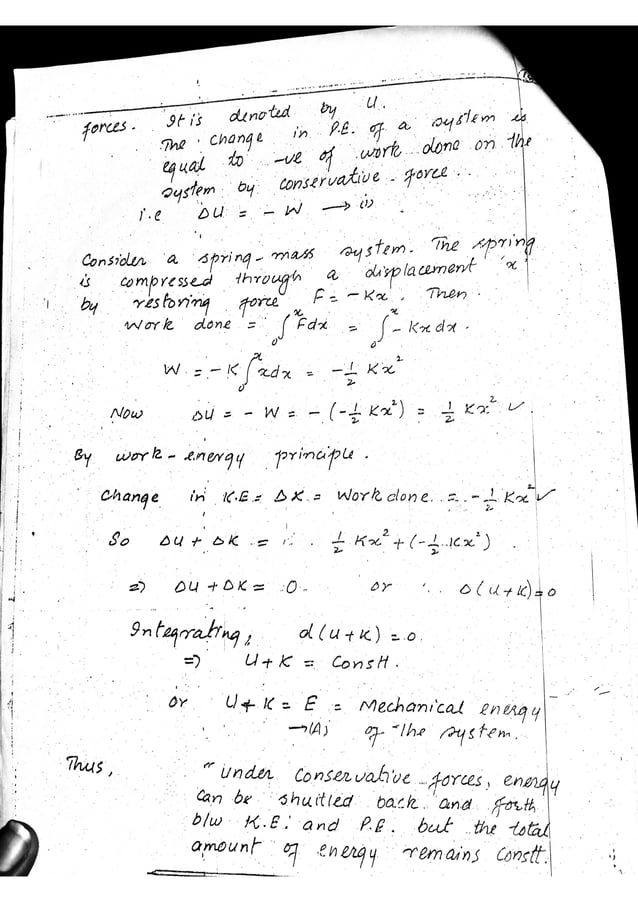 forces. It is denoted by U.
The change in P.E. of a system is
equal to -ve of work done on the
system by conservative force.
i.e ΔU = - W → (i)
Consider a spring-mass system. The spring
is compressed through a displacement 'x'
by restoring force F = - Kx. Then
work done = ∫₀ˣ Fdx = ∫₀ˣ - Kx dx.
W = - K ∫₀ˣ xdx = - 1/2 Kx²
Now ΔU = - W = - (- 1/2 Kx²) = 1/2 Kx² ✓.
By work-energy principle.
Change in K.E = ΔK = Work done = - 1/2 Kx² ✓
So ΔU + ΔK = 1/2 Kx² + (- 1/2 Kx²)
=) ΔU + ΔK = 0. or Δ(U + K) = 0
Integrating, d(U + K) = 0.
=) U + K = Constt.
or U + K = E = Mechanical energy
→ (A) of the system.
Thus, "under conservative forces, energy
can be shuitled back and forth
b/w K.E. and P.E. but the total
amount of energy remains constt.